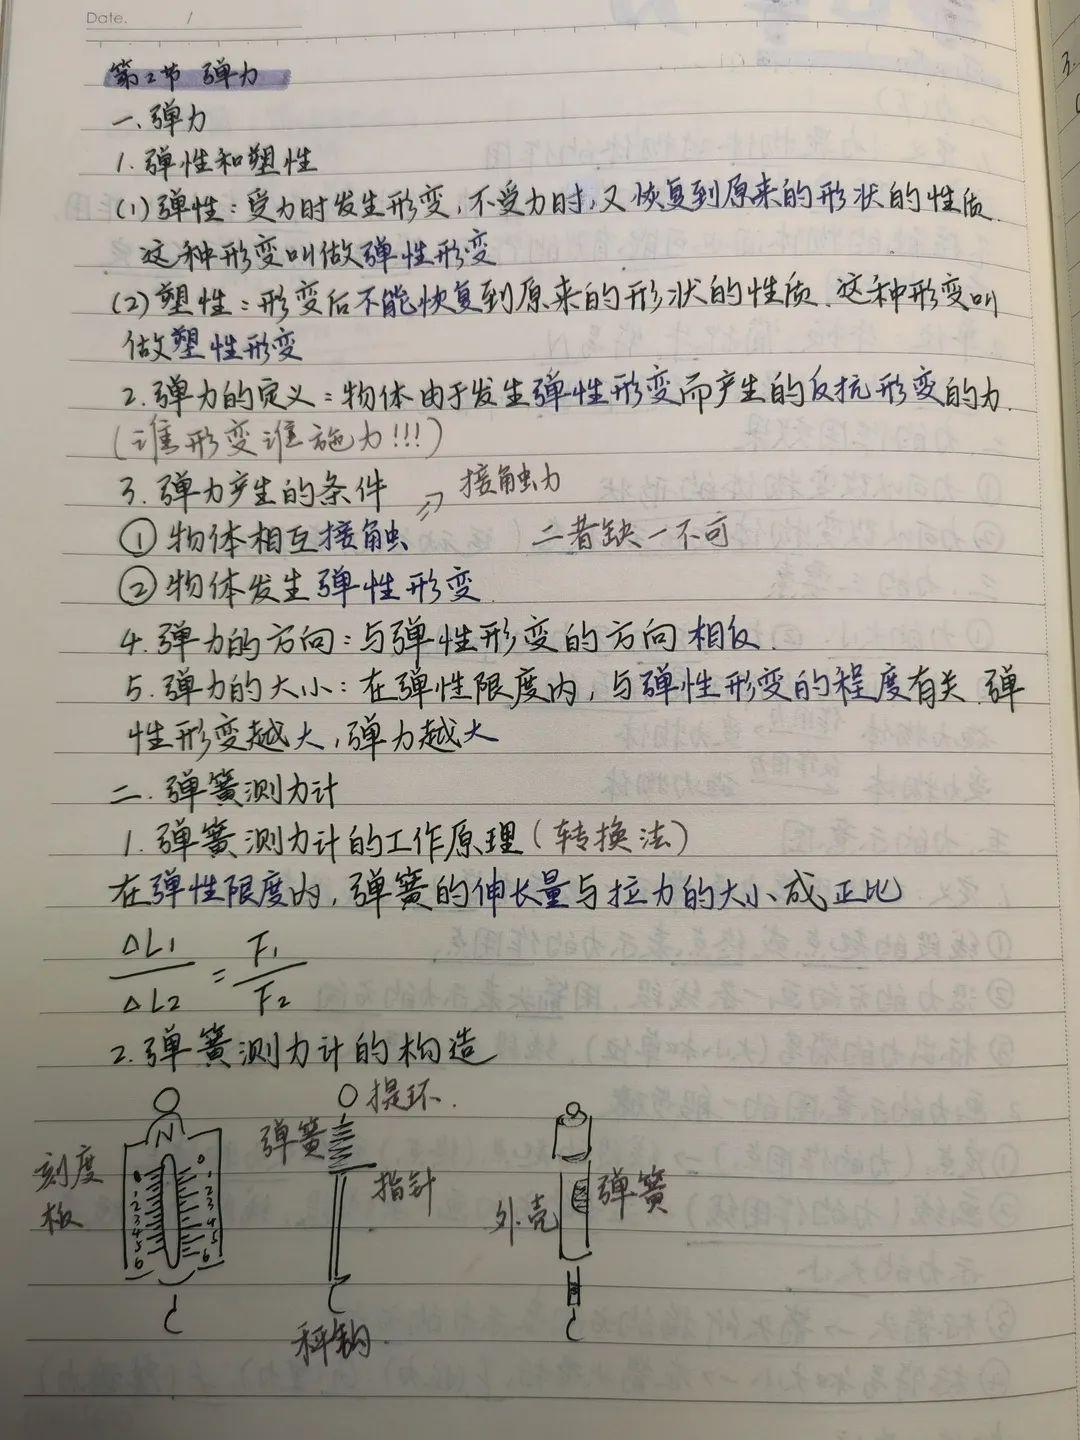 Date. /
第2节 弹力
一、弹力
1. 弹性和塑性
(1)弹性：受力时发生形变，不受力时，又恢复到原来的形状的性质.
这种形变叫做弹性形变
(2)塑性：形变后不能恢复到原来的形状的性质.这种形变叫
做塑性形变
2.弹力的定义：物体由于发生弹性形变而产生的反抗形变的力.
(谁形变谁施力!!!)
3.弹力产生的条件 => 接触力
①物体相互接触 二者缺一不可
②物体发生弹性形变
4.弹力的方向：与弹性形变的方向相反.
5.弹力的大小：在弹性限度内，与弹性形变的程度有关.弹
性形变越大，弹力越大
二.弹簧测力计
1.弹簧测力计的工作原理(转换法)
在弹性限度内，弹簧的伸长量与拉力的大小成正比
ΔL1/ΔL2 = F1/F2
2.弹簧测力计的构造
刻度板
N
0 0
1 1
2 2
3 3
4 4
5 5
6 6
提环.
弹簧
指针
秤钩.
外壳
弹簧